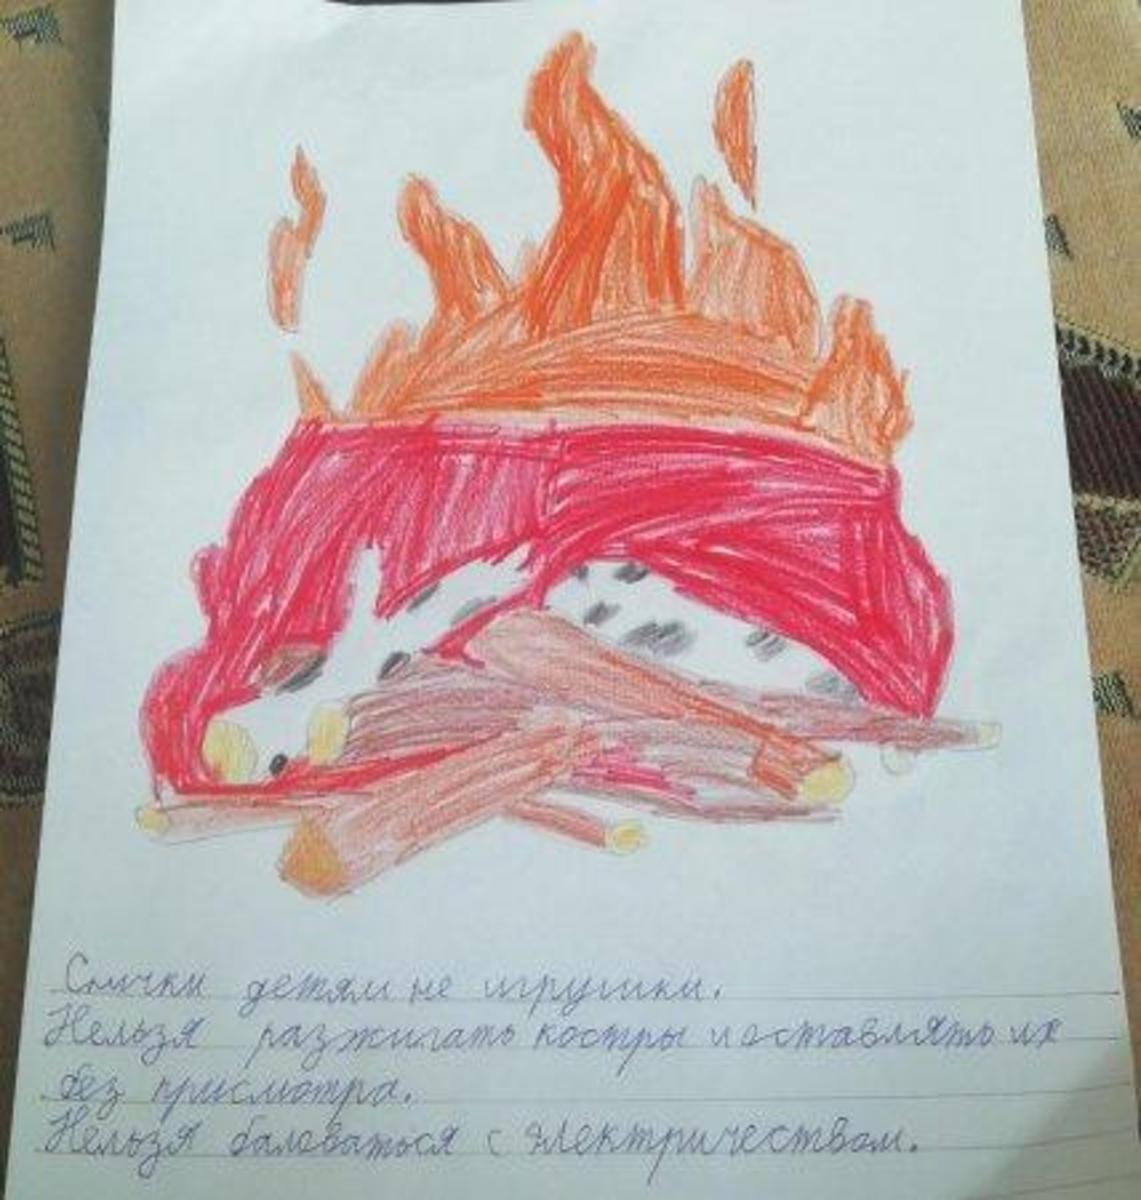 Спички детям не игрушки.
Нельзя разжигать костры и оставлять их
без присмотра.
Нельзя баловаться с электричеством.